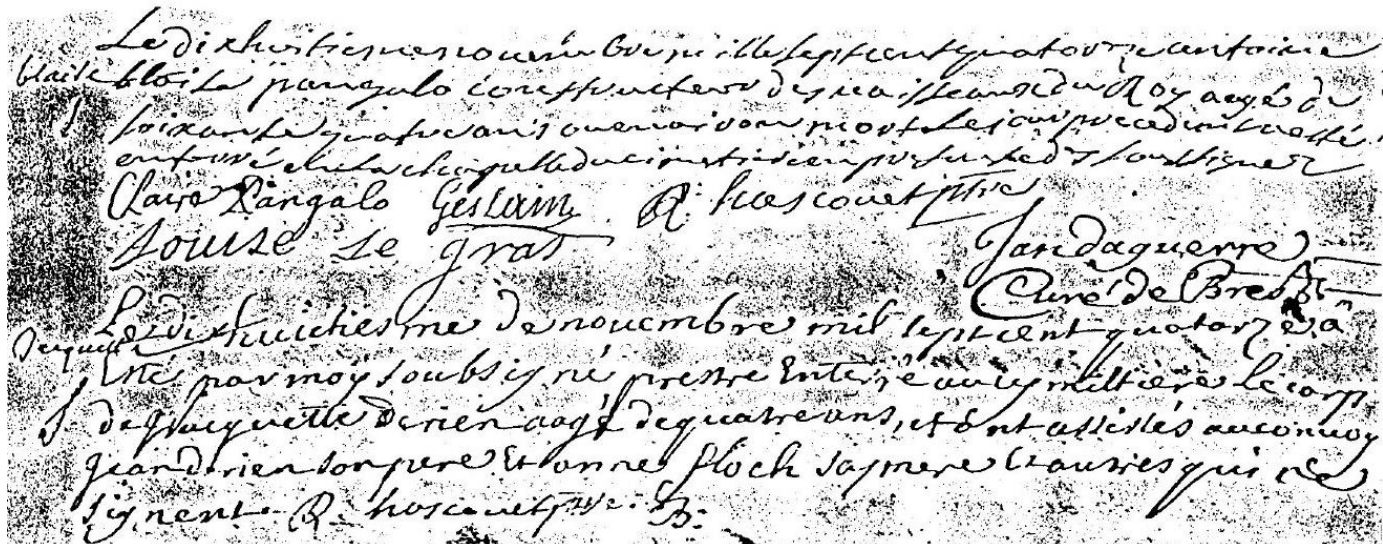 Le dixhuitiesme novembre mille sept cent quatorze antoine
blaise blaise pangalo constructeur des vaisseaux du Roy aagé de
soixante quatre ans ou environ mort le jour precedent a esté
enterré dans la chapelle du cimetiere en presence des soussignez
Claire Pangalo Geslain R. hascouet ptre
Louise Le gras Jan daguerre
Curé de Brest
Le dixhuictiesme de novembre mil sept cent quatorze a
Jacquette Esté par moy soubsigné prestre Enterré au cymiltiére le corp
de Jacquette Derien aagé de quatre ans, et ont assistés au convoy
Jean derien son pere Et anne floch sa mere Et autres qui ne
signent R. hascouet ptre